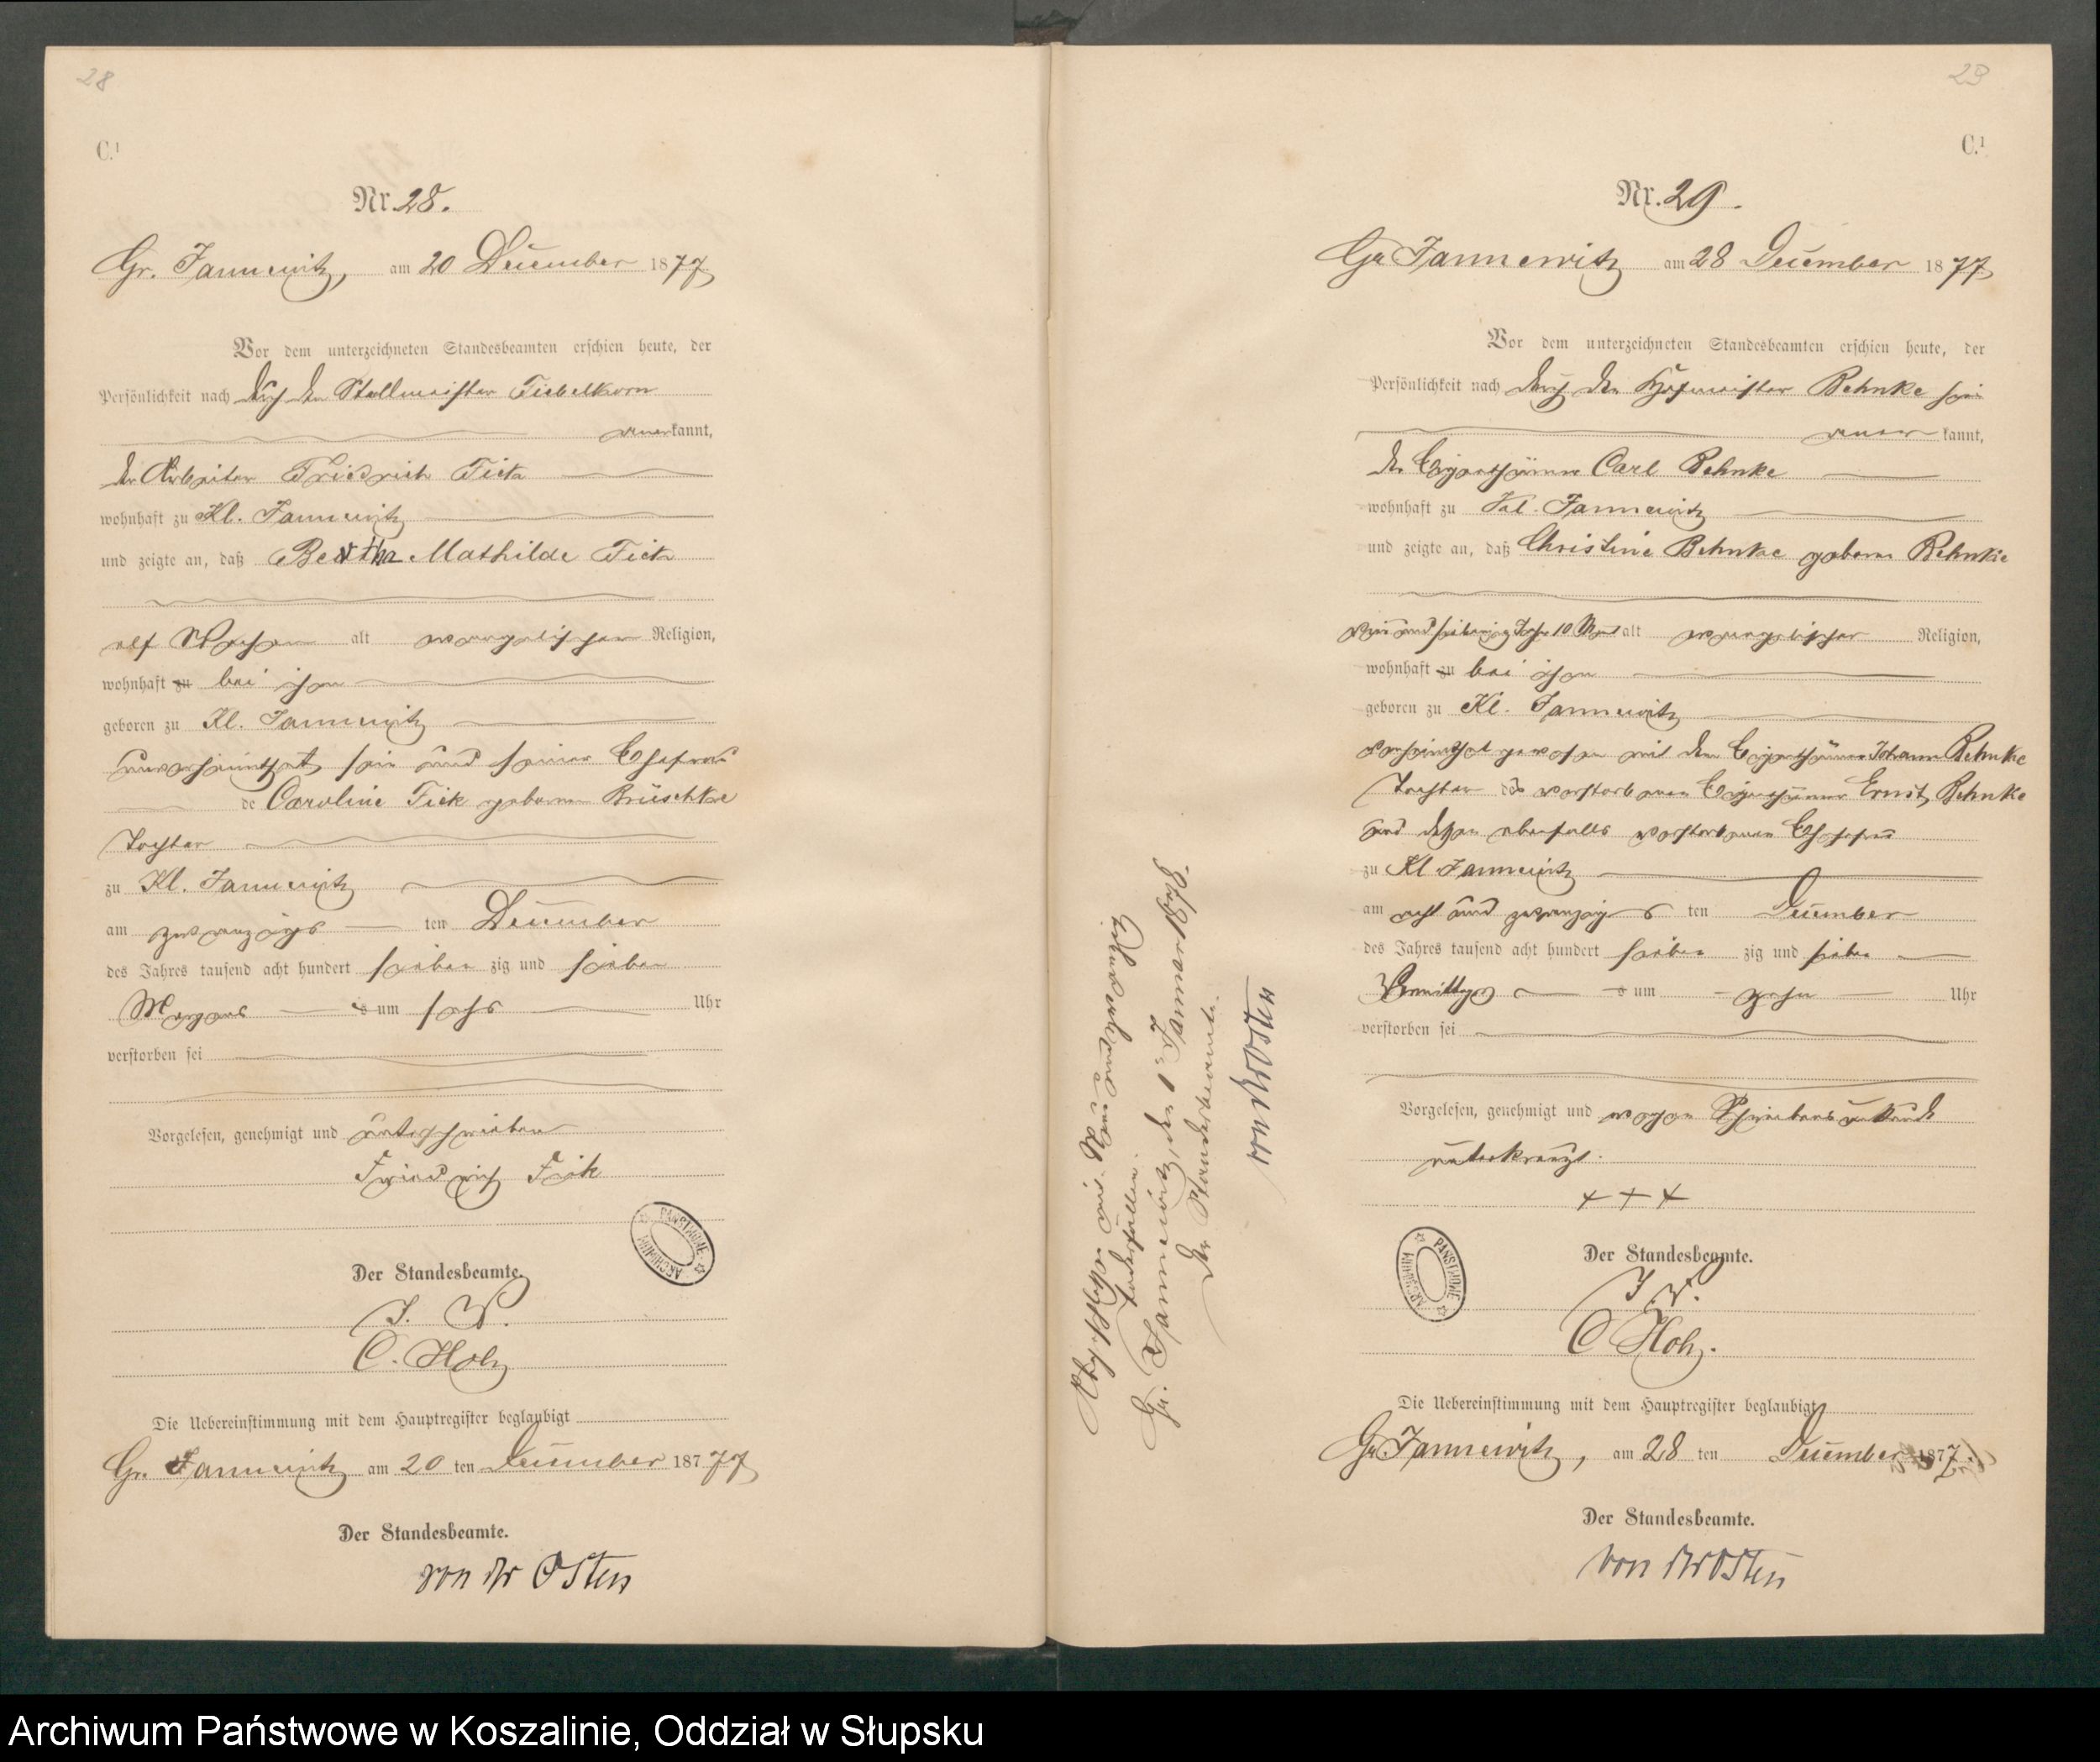 28
C.¹
Nr. 28.
Gr. Jannewitz, am 20 December 1877
Vor dem unterzeichneten Standesbeamten erschien heute, der
Persönlichkeit nach durch den Stallmeister Fiebelkorn
anerkannt,
der Arbeiter Friedrich Fick
wohnhaft zu Kl. Jannewitz
und zeigte an, daß Bertha Mathilde Fick
elf Wochen alt evangelischer Religion,
wohnhaft zu bei ihm
geboren zu Kl. Jannewitz
unverheirathet, sein und seiner Ehefrau
de Caroline Fick geborenen Brüschke
Tochter
zu Kl. Jannewitz
am zwanzigs ten December
des Jahres tausend acht hundert sieben zig und sieben
Morgens um sechs Uhr
verstorben sei
Vorgelesen, genehmigt und unterschrieben
Friedrich Fick
PAŃSTWOWE ARCHIWUM
Der Standesbeamte.
J. V.
C. Holz
Die Uebereinstimmung mit dem Hauptregister beglaubigt
Gr. Jannewitz am 20 ten December 1877
Der Standesbeamte.
von der Osten
29
C.¹
Nr. 29.
Gr Jannewitz am 28 December 1877
Vor dem unterzeichneten Standesbeamten erschien heute, der
Persönlichkeit nach durch den Hofmeister Behnke hier
anerkannt,
der Eigenthümer Carl Behnke
wohnhaft zu Kl. Jannewitz
und zeigte an, daß Christine Behnke geborne Behnke
und siebenzig Jahr 10 Mont alt evangelischer Religion,
wohnhaft zu bei ihm
geboren zu Kl. Jannewitz
verheirathet gewesen mit dem Eigenthümer Johann Behnke
Tochter des verstorbenen Eigenthümer Ernst Behnke
und dessen ebenfalls verstorbenen Ehefrau
zu Kl Jannewitz
am acht und zwanzigs ten December
des Jahres tausend acht hundert sieben zig und sieben
Vormittags um zehn Uhr
verstorben sei
Vorgelesen, genehmigt und wegen Schreibensunkunde
unterkreuzt.
+++
PAŃSTWOWE ARCHIWUM
Der Standesbeamte.
J. V.
C Holz.
Die Uebereinstimmung mit dem Hauptregister beglaubigt
Gr. Jannewitz, am 28 ten December 1877.
Der Standesbeamte.
von der Osten
Abgeschlossen mit Neun und zwanzig
Sterbefällen.
Gr. Jannewitz, den 1. Januar 1878.
Der Standesbeamte.
von der Osten
Archiwum Państwowe w Koszalinie, Oddział w Słupsku